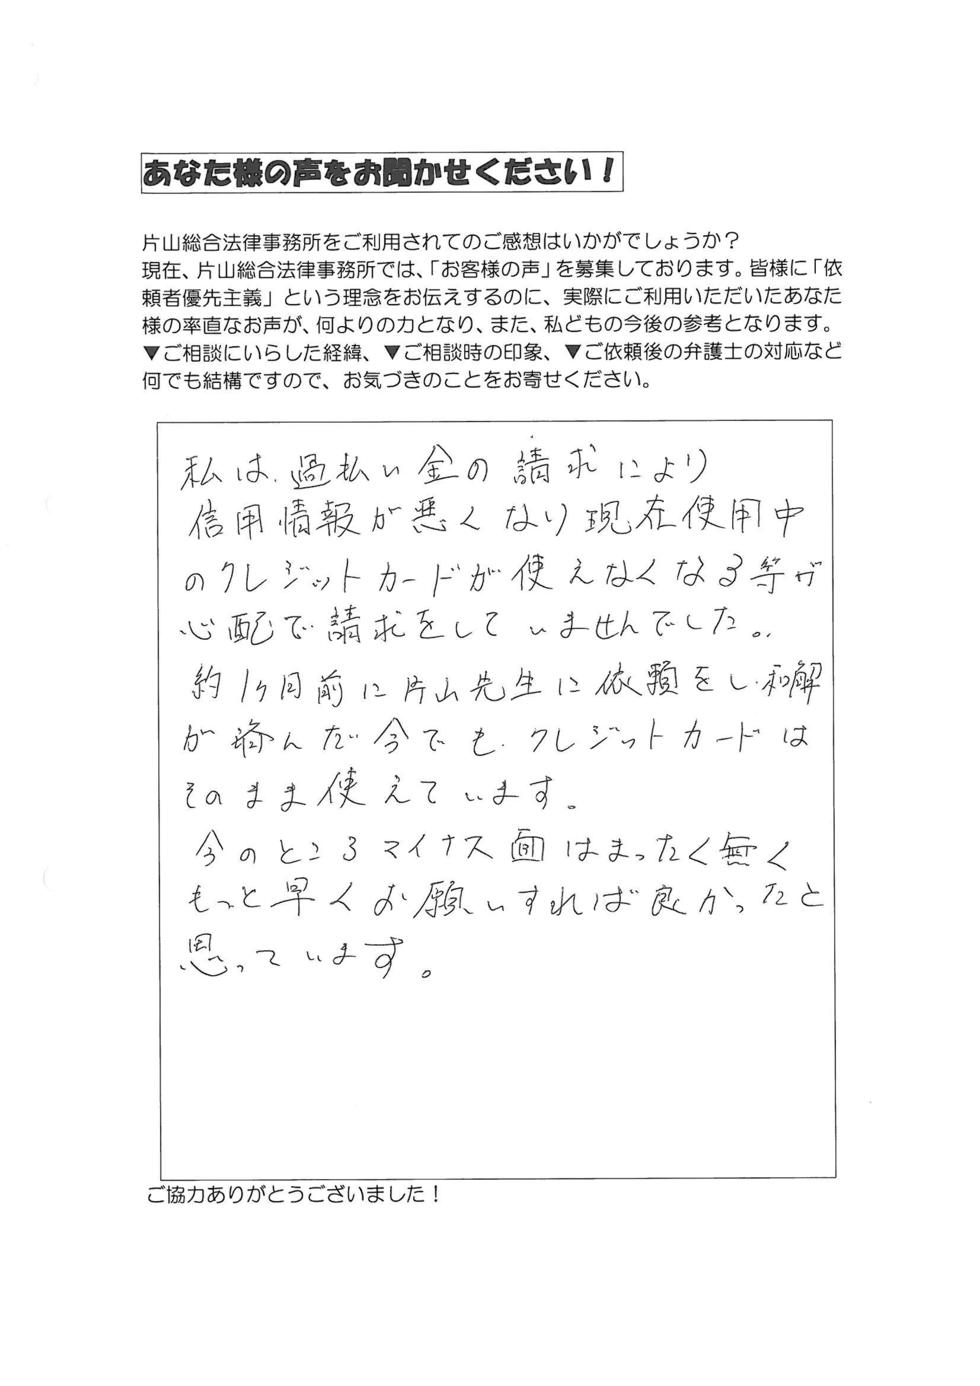 あなた様の声をお聞かせください！
片山総合法律事務所をご利用されてのご感想はいかがでしょうか？
現在、片山総合法律事務所では、「お客様の声」を募集しております。皆様に「依
頼者優先主義」という理念をお伝えするのに、実際にご利用いただいたあなた
様の率直なお声が、何よりの力となり、また、私どもの今後の参考となります。
▼ご相談にいらした経緯、▼ご相談時の印象、▼ご依頼後の弁護士の対応など
何でも結構ですので、お気づきのことをお寄せください。
私は、過払い金の請求により
信用情報が悪くなり現在使用中
のクレジットカードが使えなくなる等が
心配で請求をしていませんでした。
約1ヶ月前に片山先生に依頼をし、和解
が済んだ今でも、クレジットカードは
そのまま使えています。
今のところマイナス面はまったく無く
もっと早くお願いすれば良かったと
思っています。
ご協力ありがとうございました！